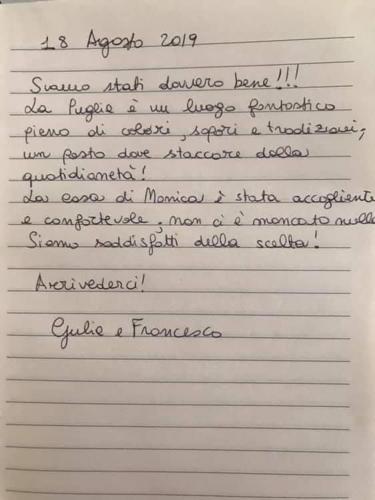 18 Agosto 2019
Siamo stati davvero bene!!!
La Puglia è un luogo fantastico
pieno di colori, sapori e tradizioni,
un posto dove staccare dalla
quotidianetà!
La casa di Monica è stata accogliente
e confortevole, non ci è mancato nulla
Siamo soddisfatti della scelta!
Arrivederci!
Giulia e Francesco